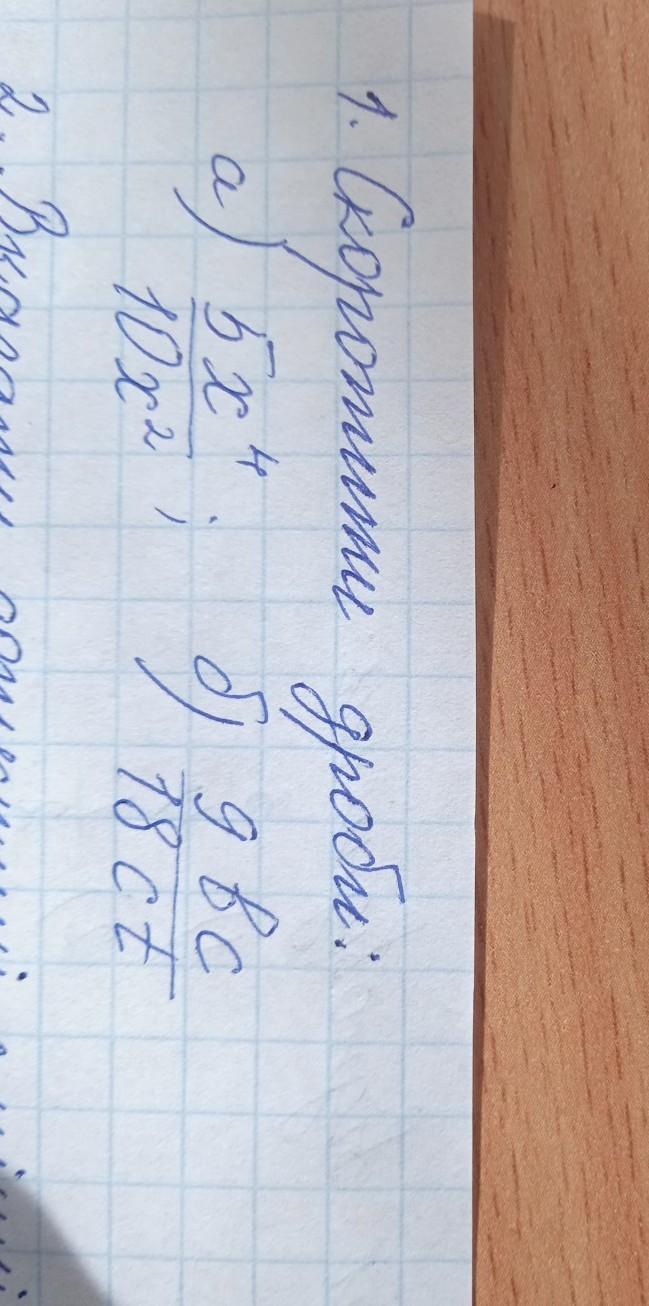 1. Скоротити дроби:
а) 5x⁴/10x² ; б) 9bc/18ct
2. Виконати